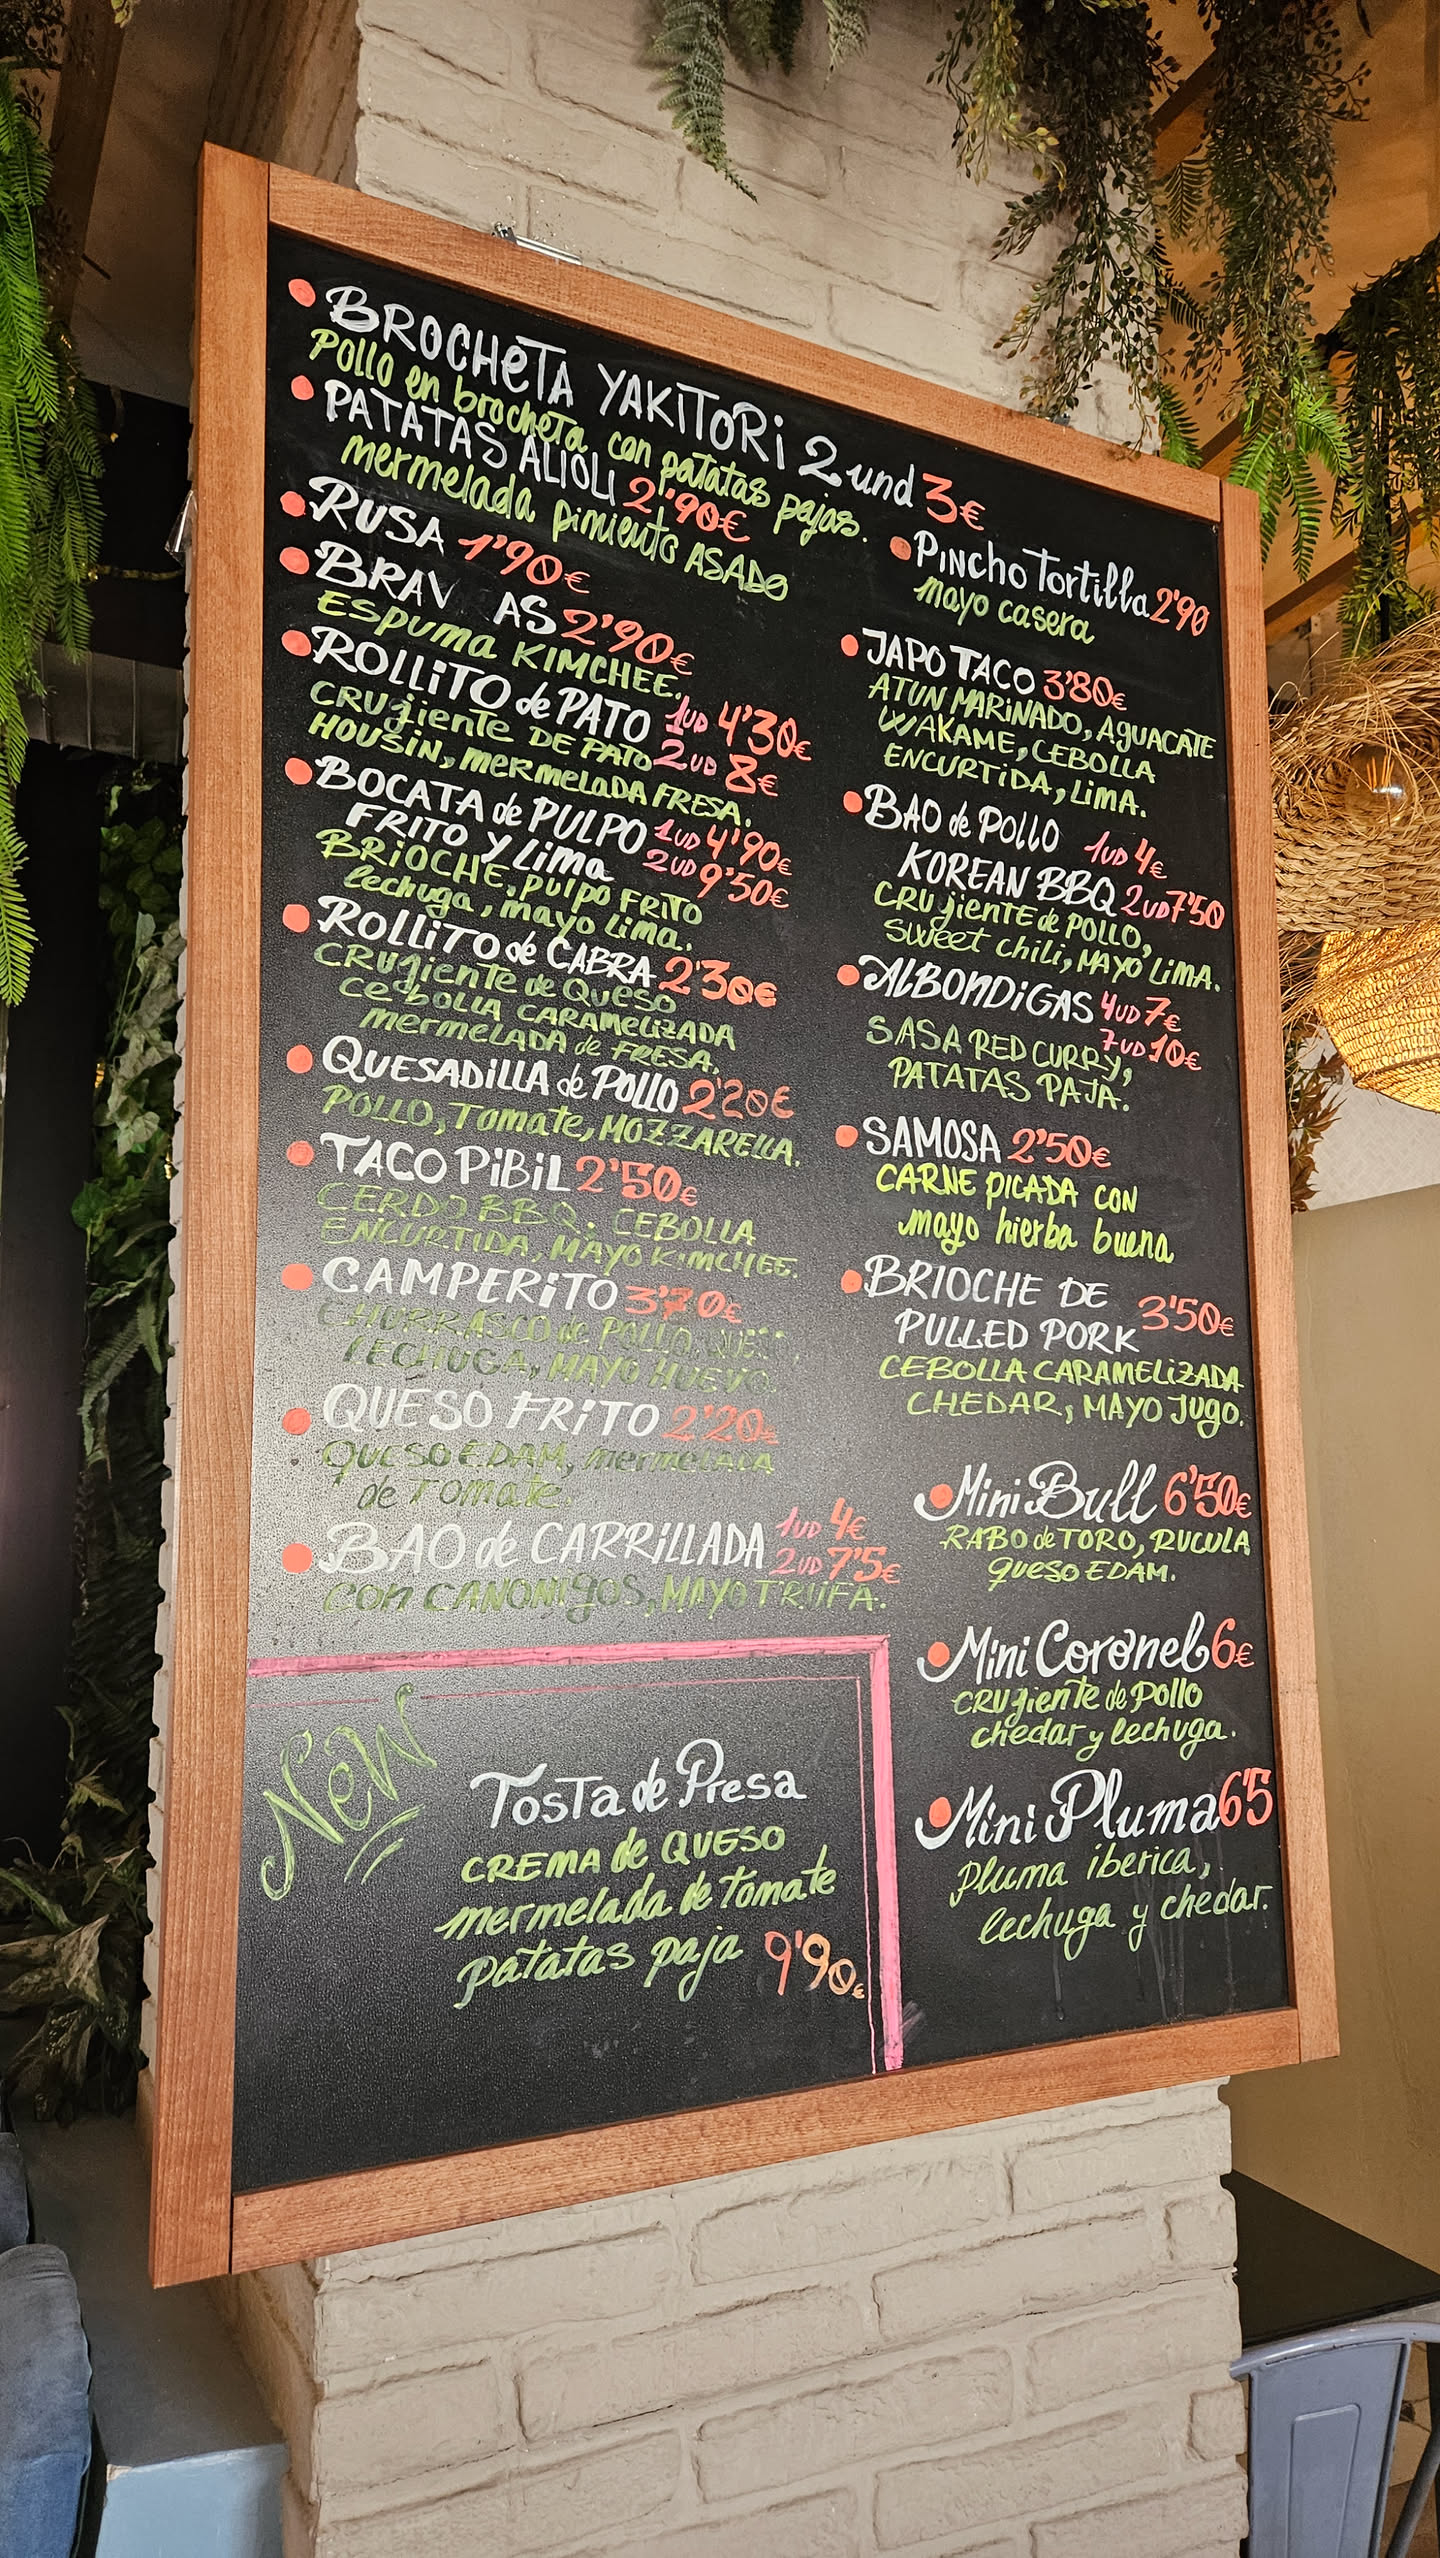 BROCHETA YAKITORI 2 und 3€
Pollo en brocheta con patatas pajas.
PATATAS ALIOLI 2'90€
mermelada pimiento ASADO
RUSA 1'90€
BRAV AS 2'90€
ESPUMA KIMCHEE.
ROLLITO de PATO 1UD 4'30€
CRUJIENTE DE PATO 2UD 8€
HOUSIN, MERMELADA FRESA.
BOCATA de PULPO 1UD 4'90€
FRITO Y Lima 2UD 9'50€
BRIOCHE, pulpo FRITO
lechuga, mayo Lima.
ROLLITO de CABRA 2'30€
CRUJIENTE de Queso
CEBOLLA CARAMELIZADA
mermELADA de FRESA.
QUESADILLA de POLLO 2'20€
POLLO, Tomate, MOZZARELLA.
TACO PIBIL 2'50€
CERDO BBQ. CEBOLLA
ENCURTIDA, MAYO KIMCHEE.
CAMPERITO 3'70€
CHURRASCO de POLLO, QUESO,
LECHUGA, MAYO HUEVO.
QUESO FRITO 2'20€
QUESO EDAM, mermELADA
de Tomate.
BAO de CARRILLADA 1UD 4€
2UD 7'5€
con CANONIgOS, MAYO TRUFA.
New
Tosta de Presa
CREMA de QUESO
mermelada de tomate
patatas paja 9'90€
Pincho Tortilla 2'90
mayo casera
JAPO TACO 3'80€
ATUN MARINADO, AguACATE
WAKAME, CEBOLLA
ENCURTIDA, LIMA.
BAO de POLLO 1UD 4€
KOREAN BBQ 2UD 7'50
CRUJIENTE de POLLO,
Sweet chili, MAYO LIMA.
ALBONDIGAS 4UD 7€
7UD 10€
SASA RED CURRY,
PATATAS PAJA.
SAMOSA 2'50€
CARNE PICADA CON
mayo hierba buena
BRIOCHE DE
PULLED PORK 3'50€
CEBOLLA CARAMELIZADA
CHEDAR, MAYO JUGO.
Mini Bull 6'50€
RABO de TORO, RUCULA
queso EDAM.
Mini Coronel 6€
CRUJIENTE de Pollo
chedar y lechuga.
Mini Pluma 6'5
Pluma iberica,
lechuga y chedar.